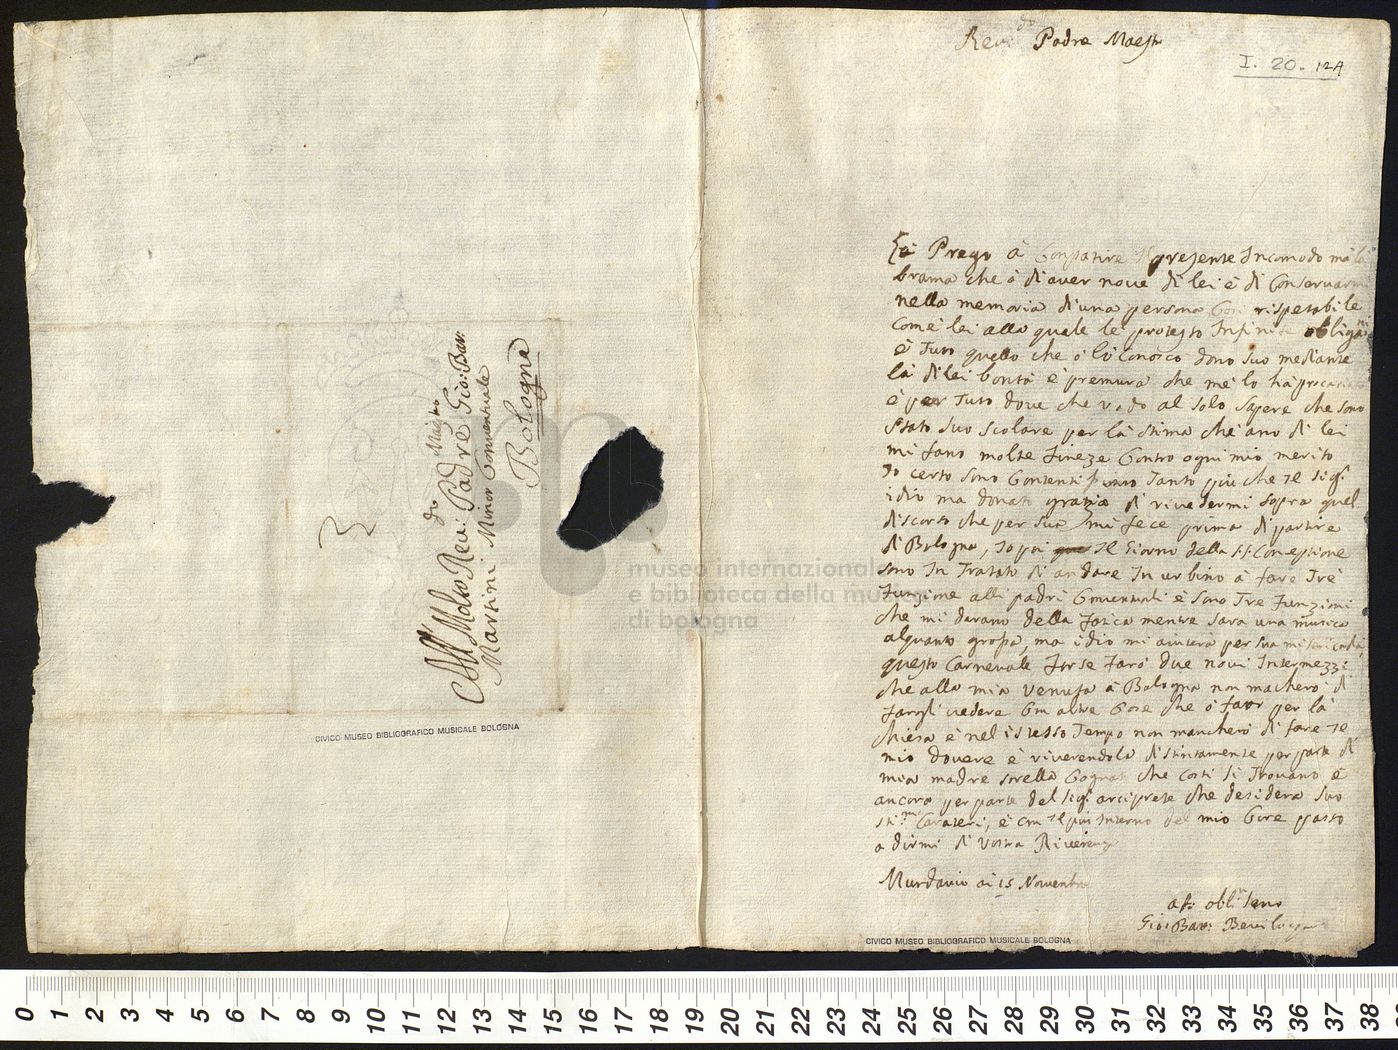 Rev:do Padre Maestr
I. 20. 124
Lá Prego á Conpatire Il presente Incomodo má lá
brama che ó di aver nove di lei é di Conservarmi
nella memoria di una persona Cosi rispetabile
Com'é lei alla quale le protesto Infinite obligani
é Tuto quello che ó ló Conosco dono suo mediante
lá di lei bontá é premura che me lo há procurato
é per Tuto dove che vado al solo sapere che sono
stato suo scolare per lá stima ché ano di lei
mi fano molte finezze Contro ogni mio merito
Io certo sono Contenti Tanto piú che Il sigr
idio ma donato grazia di rivedermi sopra quel
discorso che per sua mi fece prima di partire
di Bologna, Io poi Il Giorno della SS: Conceptione
sono In Tratato di andare In urbino á fare Tré
funzione alli padri Conventuali é sono Tre funzioni
che mi darano della fatica mentre sara una musica
alquanto grossa, ma idio mi aiuterá per sua misericordia,
questo Carnevale forse faró due novi Intermezzi
che alla mia venuta á Bologna non macheró di
fargli vedere Con altre Cose che ó fato per lá
chiesa é nel istesso Tempo non mancheró di fare Il
mio dovere é riverendola distintamente per parte di
mia madre sorella Cognati che costi si Trovano é
ancora per parte del sigr arciprete che desidera suo
sti:mi Carateri, é con Il piú Interno del mio Core passo
a dirmi di Vostra Riverenza
Mundavio ai 15 Novembre
af: obli:mo Servo
Gio: Batt: Bevilaqua
All Molto Rev:do Padre Gio: Batt:
Maestro
Martini Minor Conventuale
Bologna
CIVICO MUSEO BIBLIOGRAFICO MUSICALE BOLOGNA
CIVICO MUSEO BIBLIOGRAFICO MUSICALE BOLOGNA
museo internazionale
e biblioteca della musica
di bologna
0 1 2 3 4 5 6 7 8 9 10 11 12 13 14 15 16 17 18 19 20 21 22 23 24 25 26 27 28 29 30 31 32 33 34 35 36 37 38